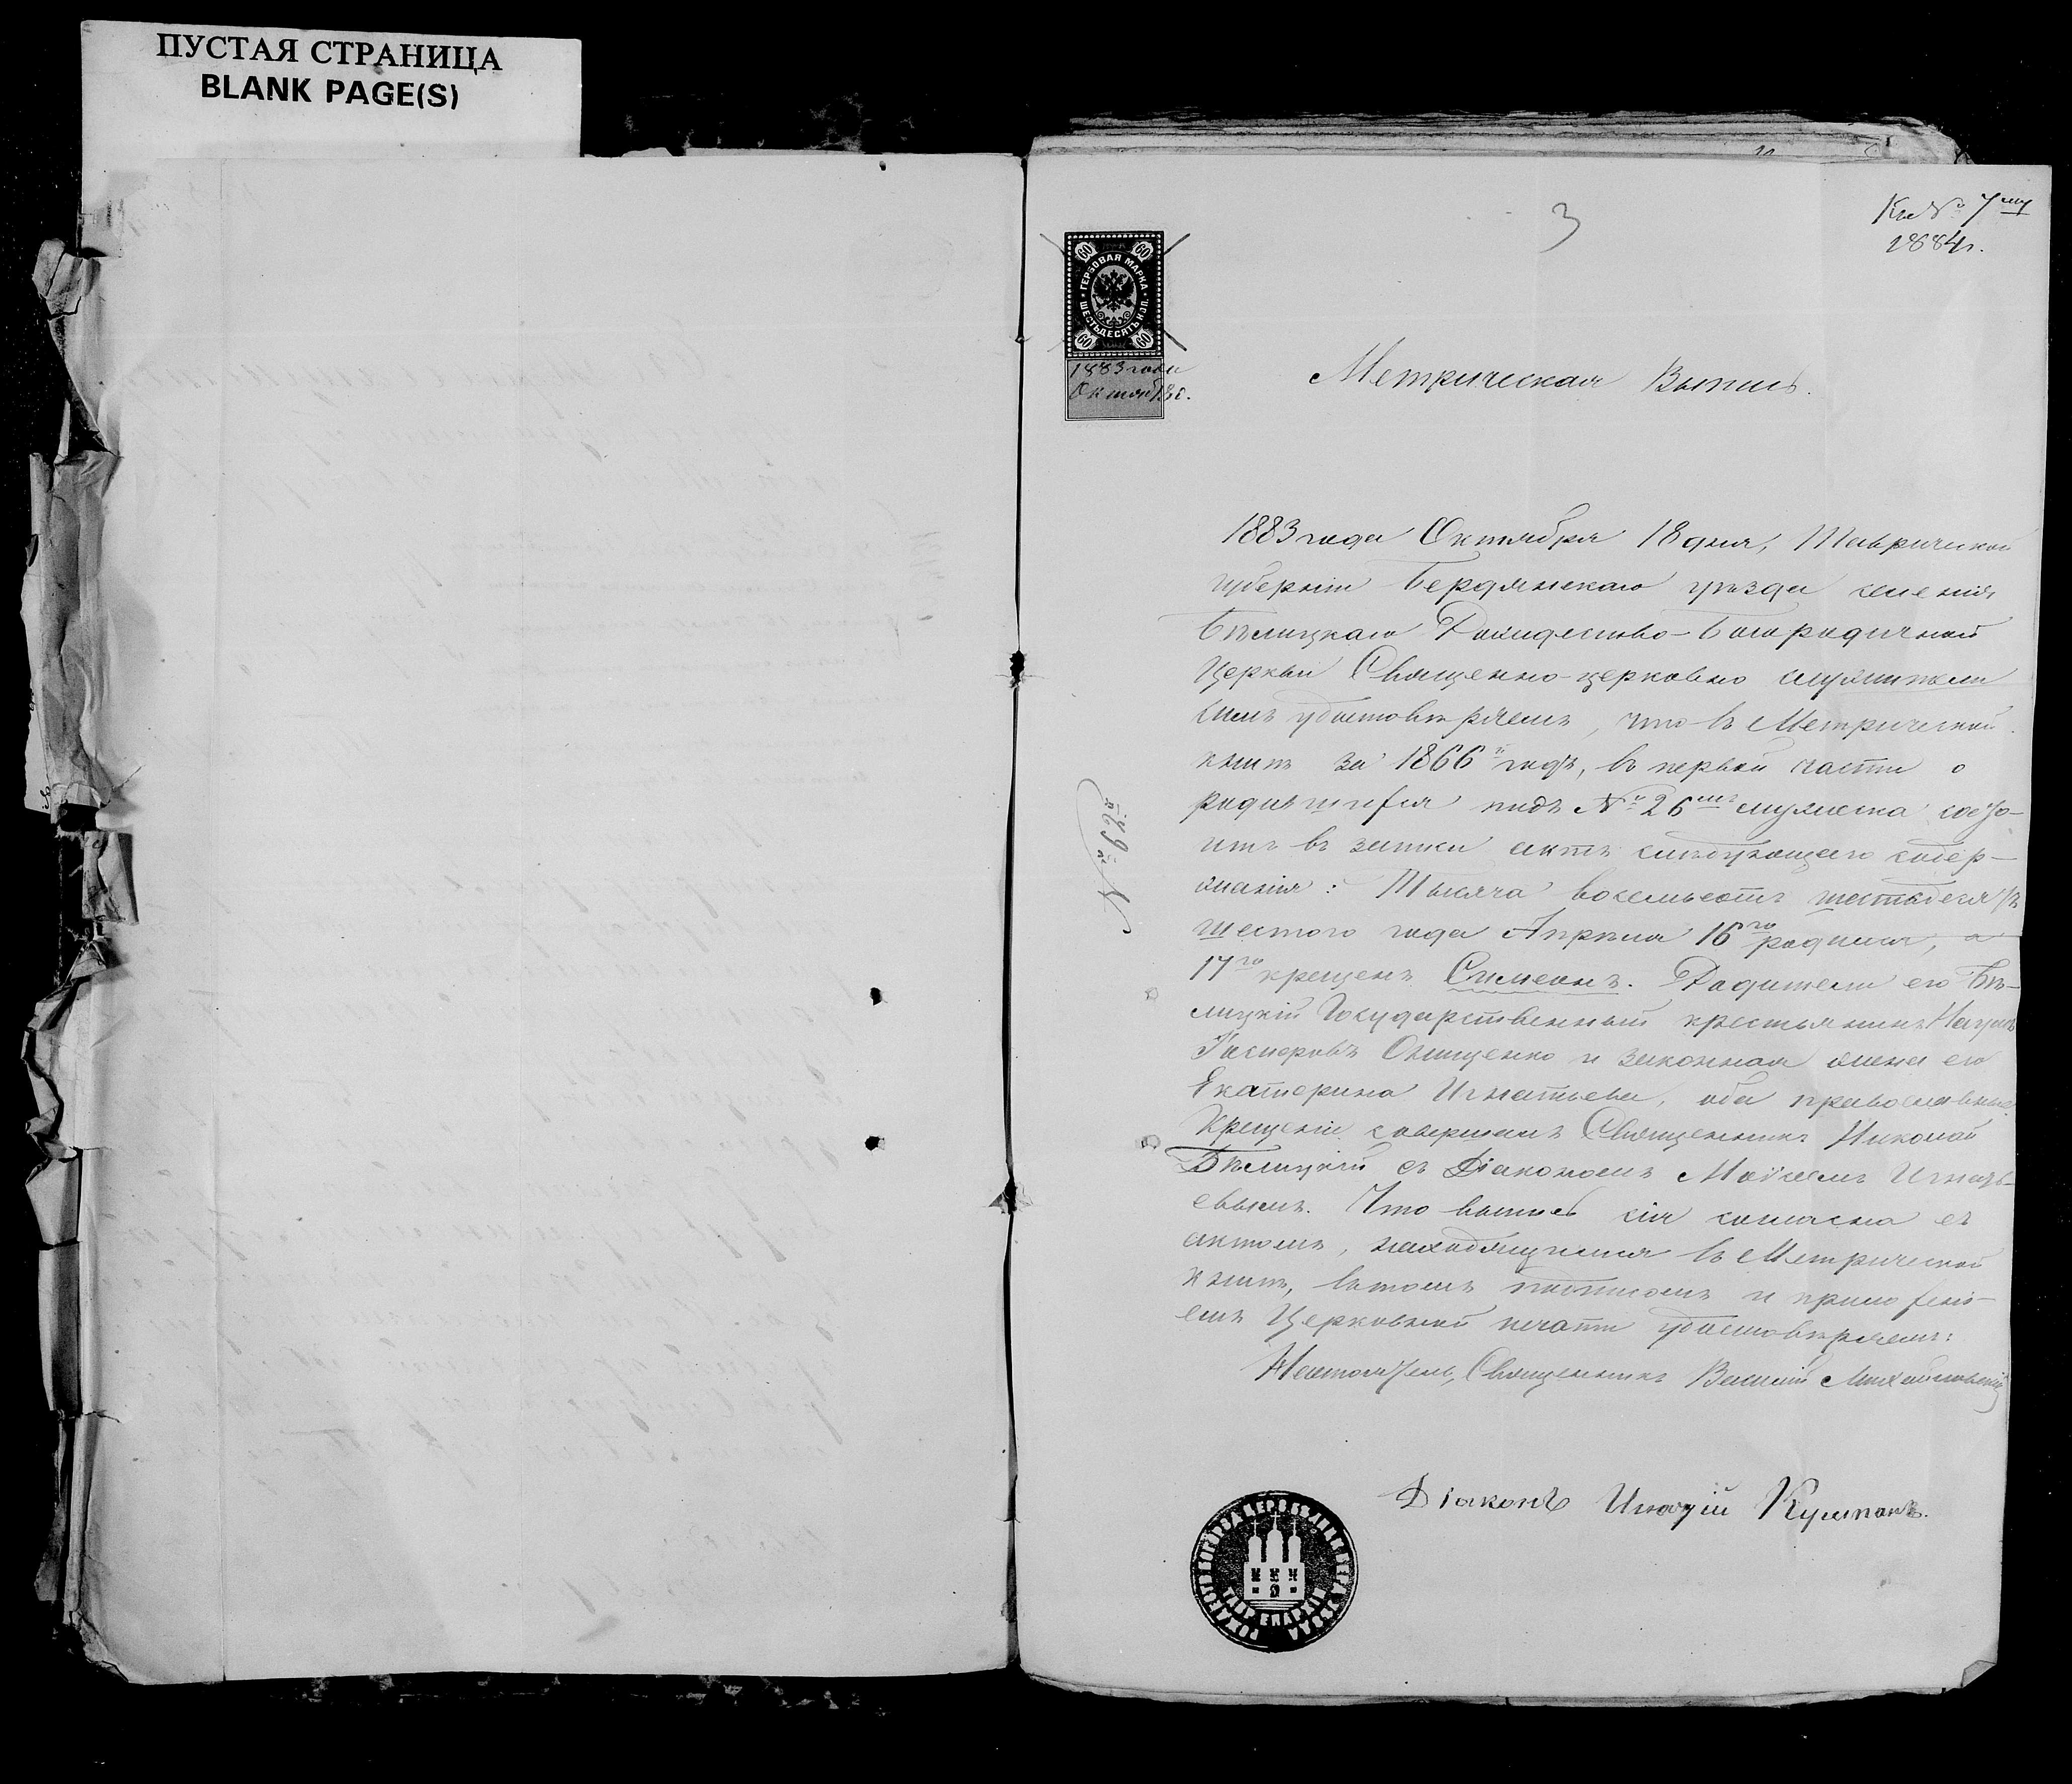 ПУСТАЯ СТРАНИЦА
BLANK PAGE(S)
3
Кн № 7му
1884г.
60 60
ГЕРБОВАЯ МАРКА
ШЕСТЬДЕСЯТЪ КОП.
60 60
1883 года
Октяб 18 д.
Метрическая Выпись.
1883 года Октября 18 дня, Таврической
губерніи Бердянскаго уѣзда селенія
Бѣлицкаго Рождество-Богородичной
Церкви Священно-церковно служители
симъ удостовѣряемъ, что въ Метрической
книгѣ за 1866й годъ, въ первой части о
родившихся подъ № 26мъ мужеска состо-
итъ въ записи актъ слѣдующаго содер-
жанія: Тысяча восемьсотъ шестьдесятъ
шестого года Апрѣля 16го родился, а
17го крещенъ Симеонъ. Родители его Бѣ-
лицкій Государственный крестьянинъ Наумъ
Онищенко и законная жена его
Екатерина Игнатьева, оба православные.
Крещеніе совершилъ Священникъ Николай
Бѣлицкій съ Діакономъ Моѵсеемъ Игнать-
евымъ. Что выпись сія согласна съ
актомъ, находящимся въ Метрической
книгѣ, въ томъ подписомъ и приложені-
емъ Церковной печати удостовѣряемъ:
Настоятель, Священникъ Василій Михайловскій
Діаконъ Игнатій
ТАВР ЕПАРХІИ
№ 679